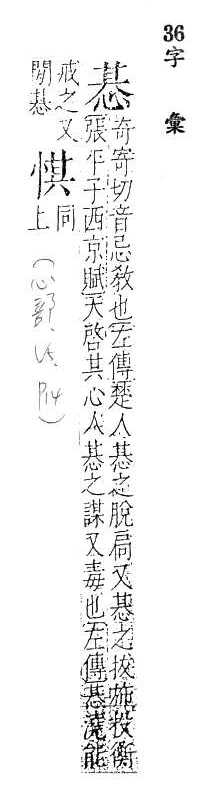 36字彙
惎
奇寄切音忌敎也左傳楚人惎之脫扃又惎之拔斾投衡
張平子西京賦天啓其心人惎之謀又毒也左傳惎澆能
戒之又
閒惎
㥍
同
上
(心部, P14)